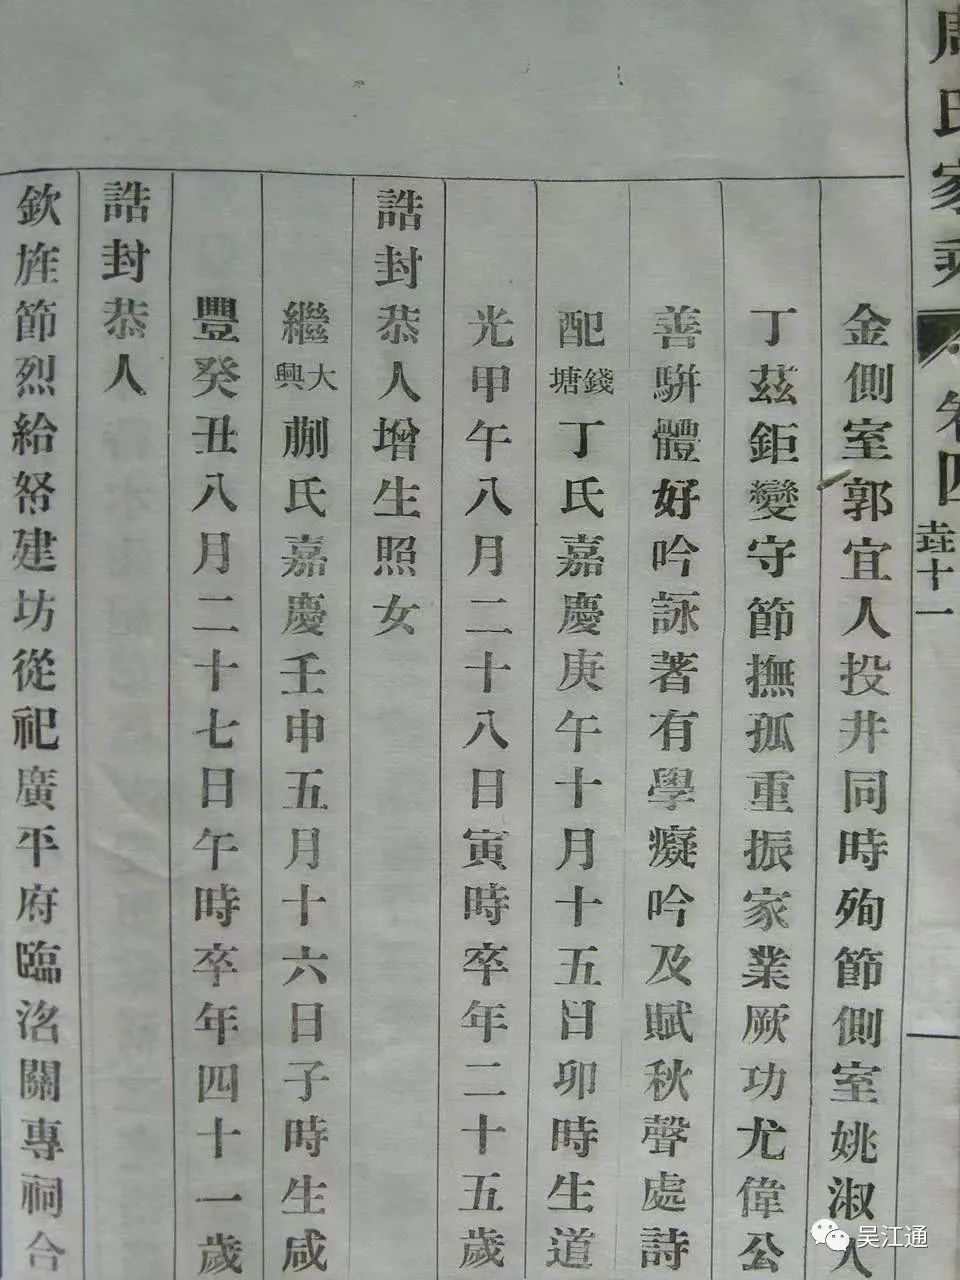 周氏家乘
卷四
世十一
金側室郭宜人投井同時殉節側室姚淑人
丁茲鉅變守節撫孤重振家業厥功尤偉公
善駢體好吟詠著有學癡吟及賦秋聲處詩
配錢塘丁氏嘉慶庚午十月十五日卯時生道
光甲午八月二十八日寅時卒年二十五歲
誥封恭人增生照女
繼大興蒯氏嘉慶壬申五月十六日子時生咸
豐癸丑八月二十七日午時卒年四十一歲
誥封恭人
欽旌節烈給帑建坊從祀廣平府臨洺關專祠合
吴江通